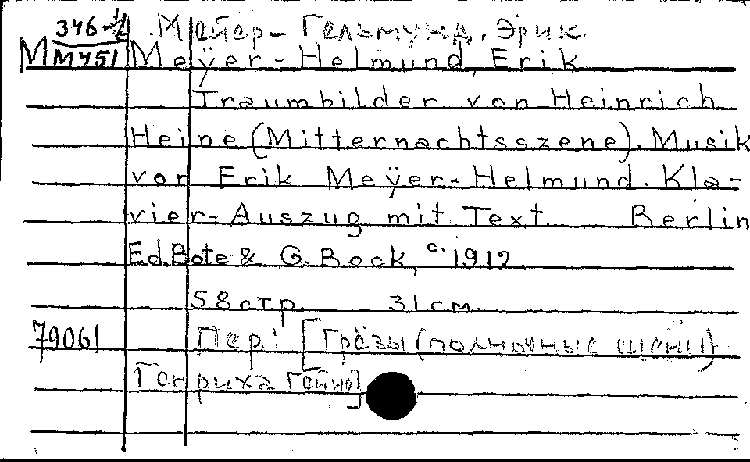 346-1/2 Мейер-Гельмунд, Эрик
M M451 Meÿer-Helmund, Erik
Traumbilder von Heinrich
Heine (Mitternachtsszene). Musik
von Erik Meÿer-Helmund. Kla-
vier-Auszug mit Text Berlin
Ed. Bote & G. Bock, c. 1912
58 стр 31 см
79061 Пер: [Грёзы (полночные сцены)
Генриха Гейне]